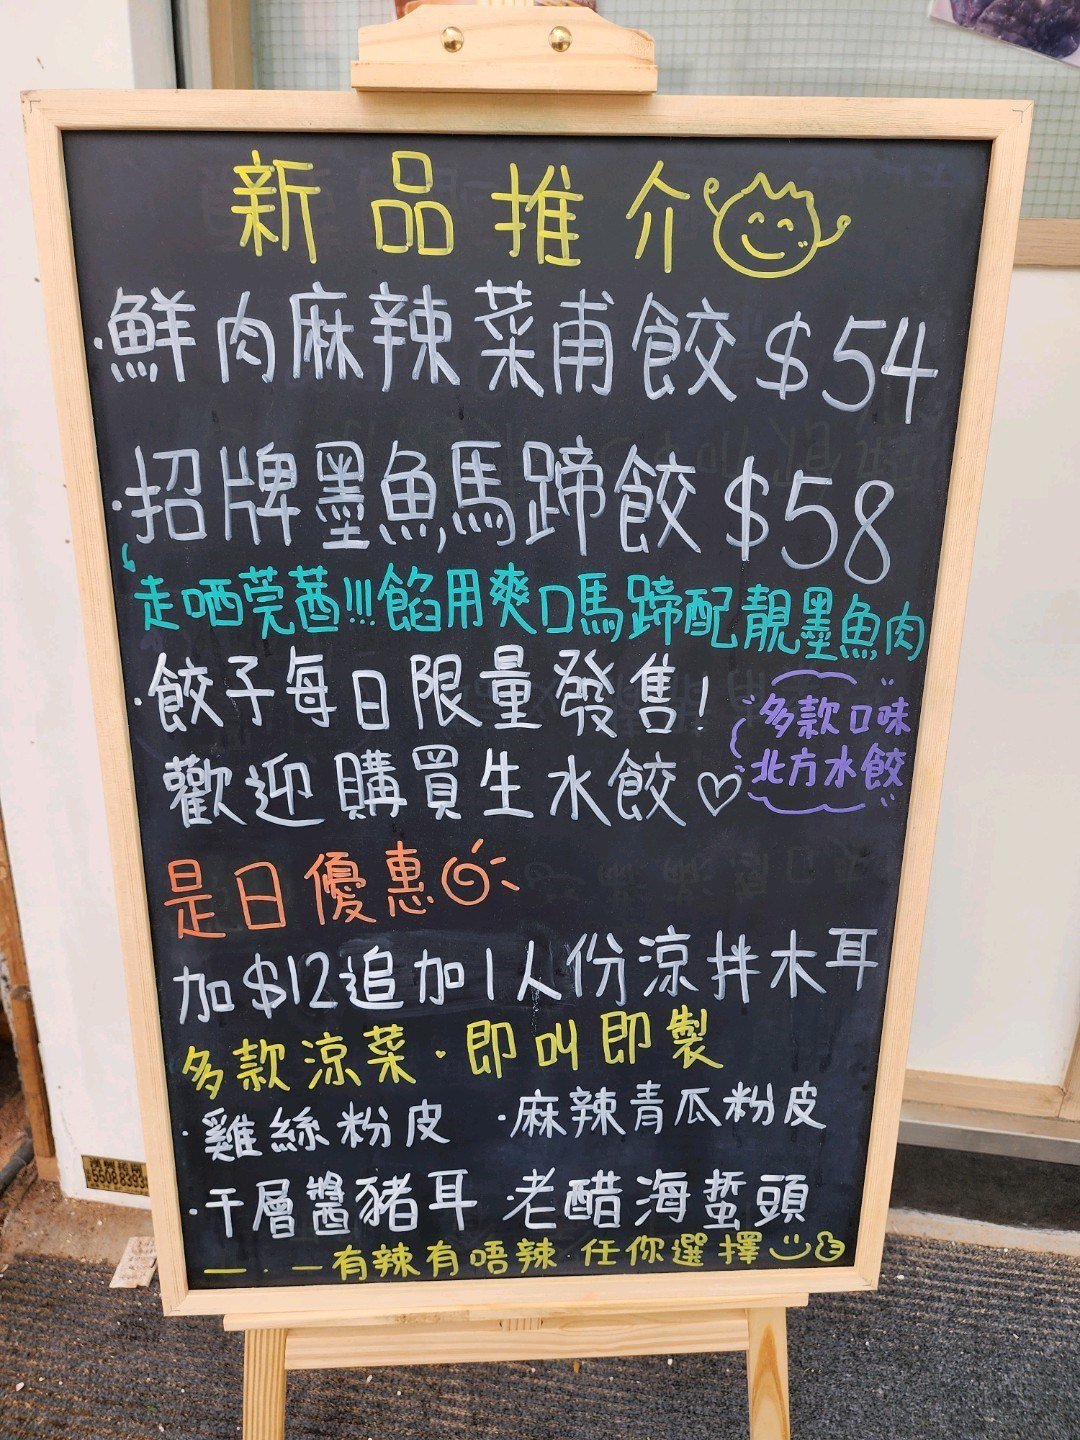 新品推介
·鮮肉麻辣菜甫餃 $54
·招牌墨魚馬蹄餃 $58
走哂芫茜!!!餡用爽口馬蹄配靚墨魚肉
·餃子每日限量發售!
歡迎購買生水餃♡
多款口味
北方水餃
是日優惠
加$12追加1人份涼拌木耳
多款涼菜·即叫即製
·雞絲粉皮 ·麻辣青瓜粉皮
·千層醬豬耳 ·老醋海蜇頭
有辣有唔辣·任你選擇